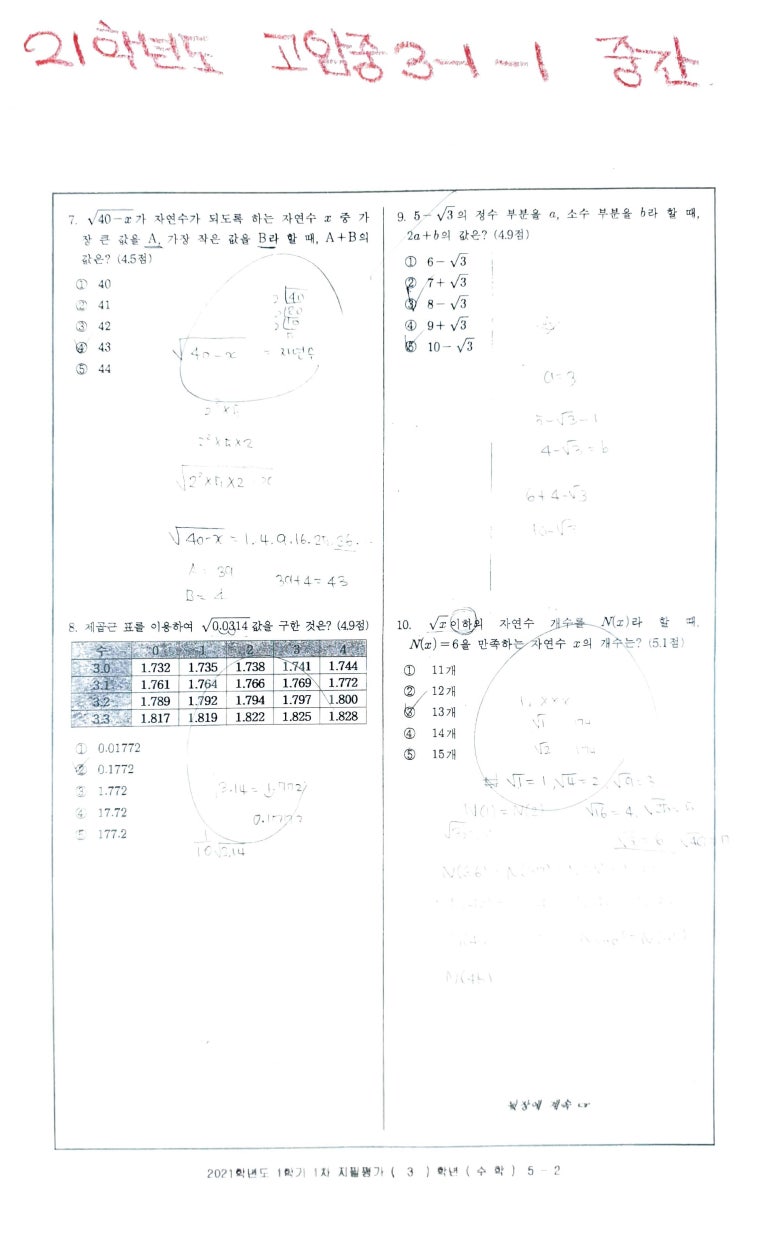 21학년도 고암중 3-1-1 중간
7. √40-x가 자연수가 되도록 하는 자연수 x 중 가
장 큰 값을 A, 가장 작은 값을 B라 할 때, A+B의
값은? (4.5점)
① 40
② 41
③ 42
④ 43
⑤ 44
√40-x = 자연수
2²×5×2
√40-x = 1.4.9.16.25.36.
A = 39
B = 4
39+4=43
8. 제곱근 표를 이용하여 √0.0314 값을 구한 것은? (4.9점)
수 0 1 2 3 4
3.0 1.732 1.735 1.738 1.741 1.744
3.1 1.761 1.764 1.766 1.769 1.772
3.2 1.789 1.792 1.794 1.797 1.800
3.3 1.817 1.819 1.822 1.825 1.828
① 0.01772
② 0.1772
③ 1.772
④ 17.72
⑤ 177.2
3.14 = 1.772
0.1772
9. 5-√3의 정수 부분을 a, 소수 부분을 b라 할 때,
2a+b의 값은? (4.9점)
① 6-√3
② 7+√3
③ 8-√3
④ 9+√3
⑤ 10-√3
a=3
5-√3-1
4-√3=b
6+4-√3
10-√3
10. √x 이하의 자연수 개수를 N(x)라 할 때,
N(x)=6을 만족하는 자연수 x의 개수는? (5.1점)
① 11개
② 12개
③ 13개
④ 14개
⑤ 15개
√1=1, √4=2, √9=3
√16=4, √25=5
뒷장에 계속☞
2021학년도 1학기 1차 지필평가 ( 3 ) 학년 ( 수 학 ) 5 - 2